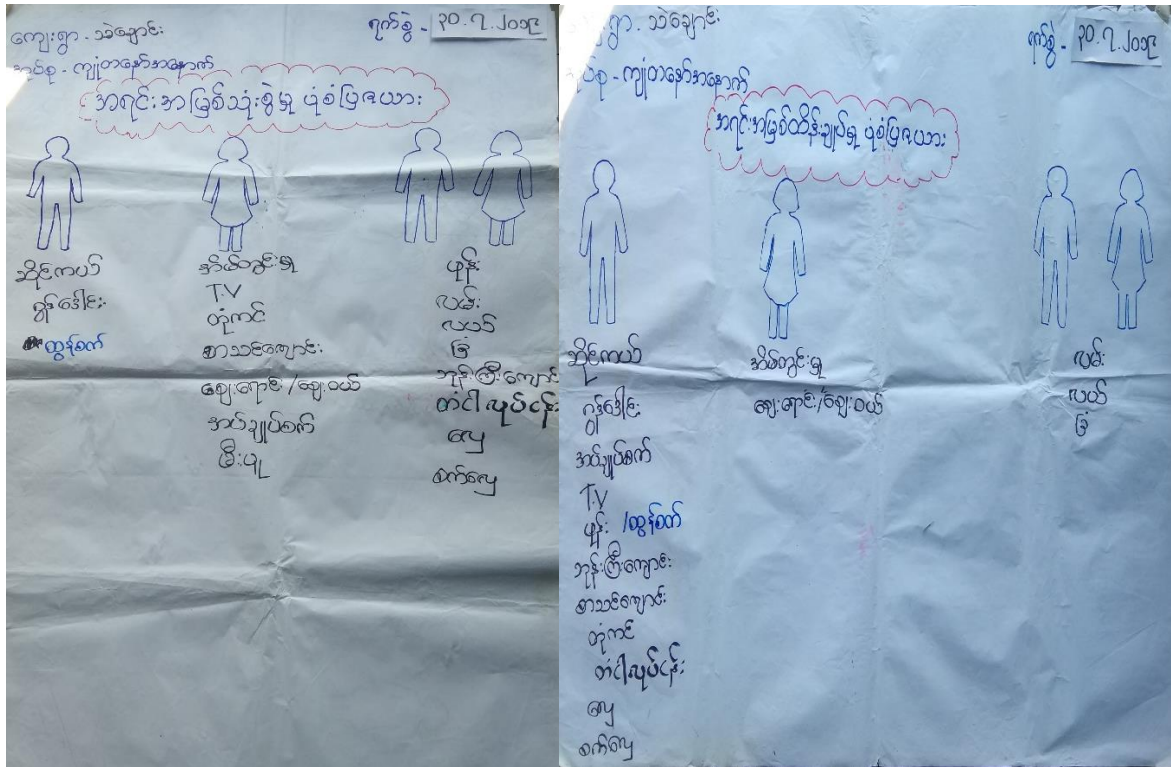 ကျေးရွာ - သဲချောင်း
ရက်စွဲ - ၃၀.၇.၂၀၁၉
အုပ်စု - ကျုံတနော်အနောက်
အရင်းအမြစ်သုံးစွဲမှု ပုံစံပြဇယား
ဆိုင်ကယ်
ဂွန်ဒေါင်း
ထွန်စက်
အိမ်တွင်းမှု
T.V
တုံကင်
စာသင်ကျောင်း
ဈေးရောင်း/ဈေးဝယ်
အပ်ချုပ်စက်
မီးပူ
ဖုန်း
လမ်း
လယ်
ခြံ
ဘုန်းကြီးကျောင်း
တံငါလုပ်ငန်း
လှေ
စက်လှေ
ရွာ - သဲချောင်း
ရက်စွဲ - ၃၀.၇.၂၀၁၉
အုပ်စု - ကျုံတနော်အနောက်
အရင်းအမြစ်ထိန်းချုပ်မှု ပုံစံပြဇယား
ဆိုင်ကယ်
ဂွန်ဒေါင်း
အပ်ချုပ်စက်
T.V
ဖုန်း /ထွန်စက်
ဘုန်းကြီးကျောင်း
စာသင်ကျောင်း
တုံကင်
တံငါလုပ်ငန်း
လှေ
စက်လှေ
အိမ်တွင်းမှု
ဈေးရောင်း/ဈေးဝယ်
လမ်း
လယ်
ခြံ